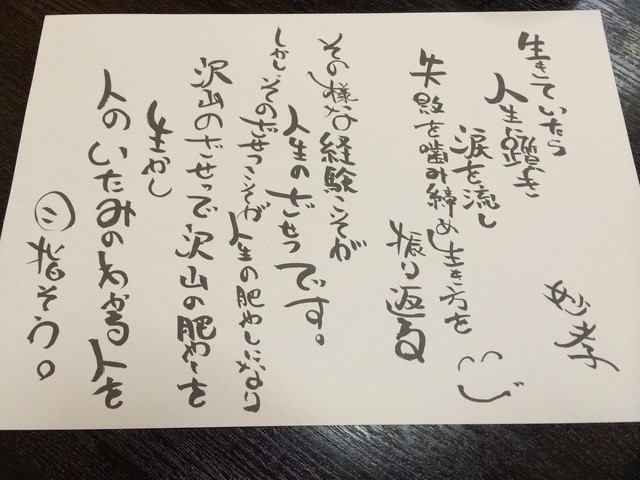 妙孝
生きていたら
人生に躓き
涙を流し
失敗を噛み締め生き方を
振り返る
その様な経験こそが
人生のざせつです。
しかしそのざせつこそが人生の肥やしになり
沢山のざせつで沢山の肥やしを
生かし
人のいたみのわかる人を
目指そう。